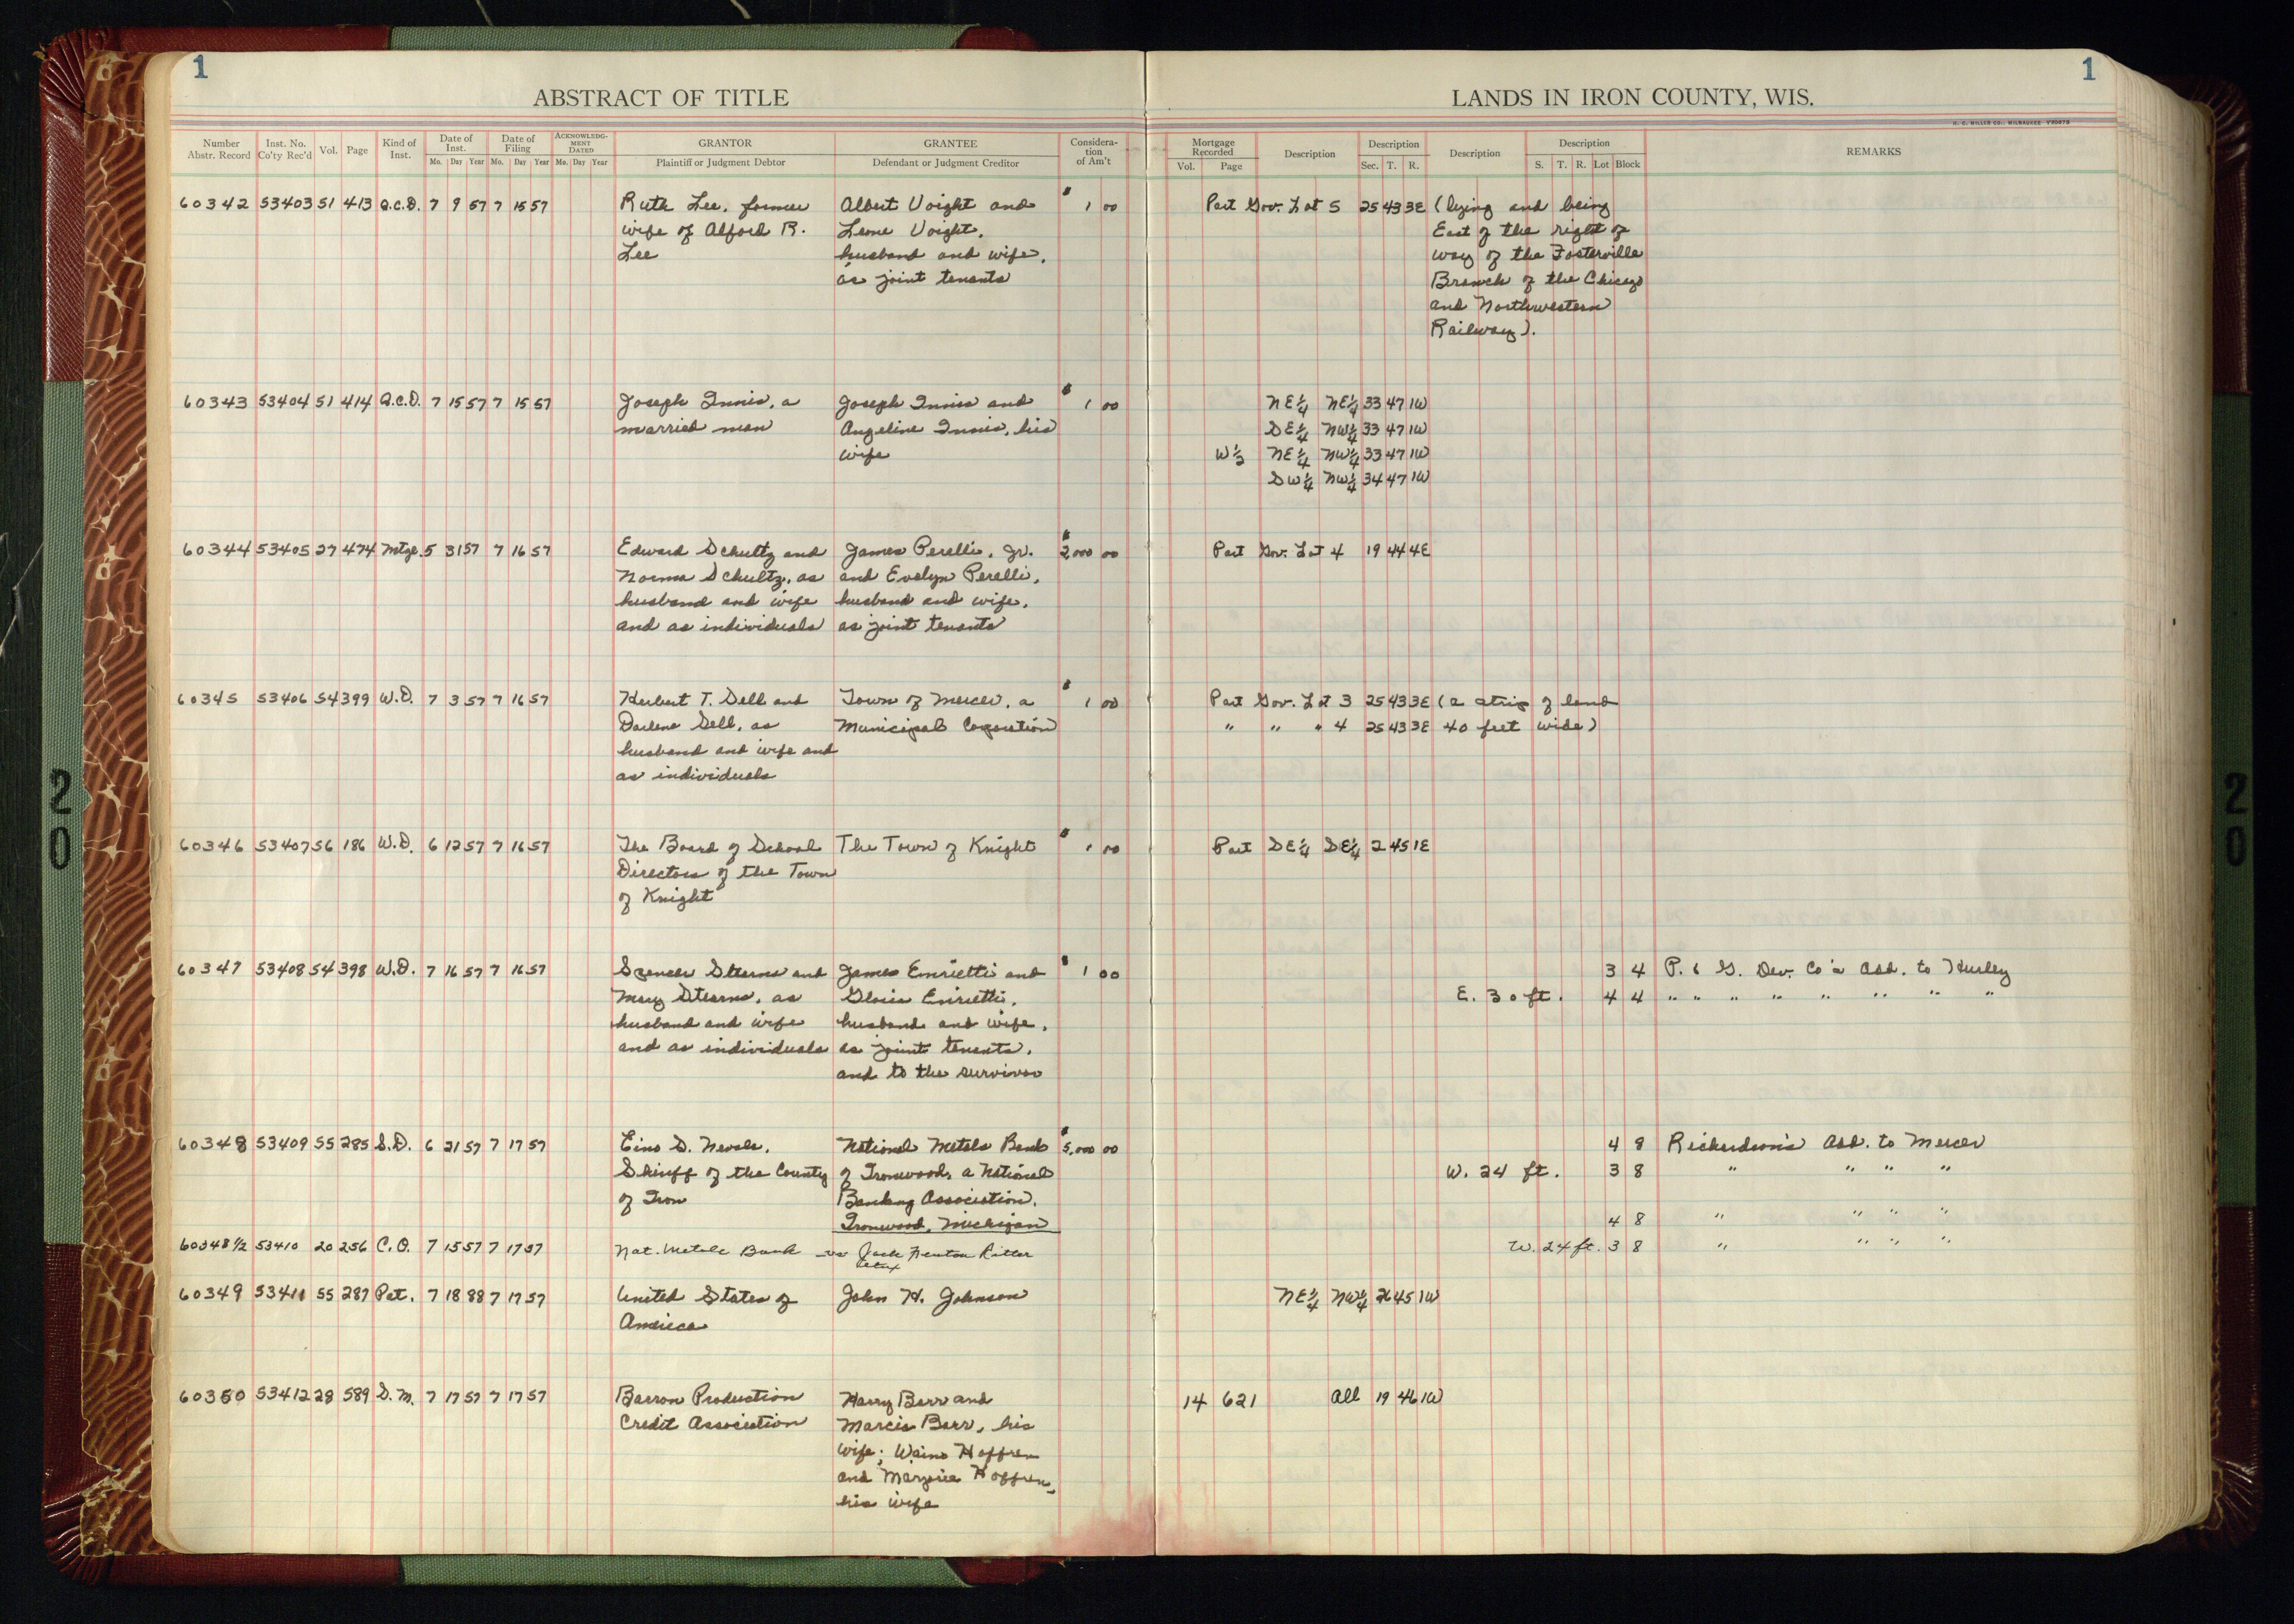 1
1
ABSTRACT OF TITLE
LANDS IN IRON COUNTY, WIS.
H. C. MILLER CO., MILWAUKEE
Number Abstr. Record | Inst. No. Co'ty Rec'd | Vol. | Page | Kind of Inst. | Date of Inst. Mo. Day Year | Date of Filing Mo. Day Year | ACKNOWLEDGMENT DATED Mo. Day Year | GRANTOR Plaintiff or Judgment Debtor | GRANTEE Defendant or Judgment Creditor | Consideration of Am't | Mortgage Recorded Vol. Page | Description | Description Sec. T. R. | Description | Description S. T. R. Lot Block | REMARKS
60342 53403 51 413 Q.C.D. 7 9 57 7 15 57 Ruth Lee, former Albert Voight and $1 00 Part Gov. Lot 5 25 43 3E (lying and being
wife of Alford R. Leone Voight, East of the right of
Lee husband and wife, way of the Fosterville
as joint tenants Branch of the Chicago
and Northwestern
Railway).
60343 53404 51 414 Q.C.D. 7 15 57 7 15 57 Joseph Innis, a Joseph Innis and $1 00 NE¼ NE¼ 33 47 1W
married man Angeline Innis, his SE¼ NW¼ 33 47 1W
wife W½ NE¼ NW¼ 33 47 1W
SW¼ NW¼ 34 47 1W
60344 53405 27 474 Mtge. 5 31 57 7 16 57 Edward Schultz and James Perelli, Jr. $2,000 00 Part Gov. Lot 4 19 44 4E
Norma Schultz, as and Evelyn Perelli,
husband and wife husband and wife,
and as individuals as joint tenants
60345 53406 54 399 W.D. 7 3 57 7 16 57 Herbert T. Sell and Town of Mercer, a $1 00 Part Gov. Lot 3 25 43 3E (a strip of land
Darlene Sell, as Municipal Corporation " " " 4 25 43 3E 40 feet wide)
husband and wife and
as individuals
60346 53407 56 186 W.D. 6 12 57 7 16 57 The Board of School The Town of Knight $1 00 Part SE¼ SE¼ 2 45 1E
Directors of the Town
of Knight
60347 53408 54 398 W.D. 7 16 57 7 16 57 Spencer Stearns and James Enrietti and $1 00 3 4 P. & G. Dev. Co's Add. to Hurley
Mary Stearns, as Gloria Enrietti, E. 30 ft. 4 4 " " " " " " " "
husband and wife husband and wife,
and as individuals as joint tenants,
and to the survivor
60348 53409 55 285 S.D. 6 21 57 7 17 57 Eino S. Nevala, National Metals Bank $5,000 00 4 8 Richardson's Add. to Mercer
Sheriff of the County of Ironwood, a National W. 24 ft. 3 8 " " " "
of Iron Banking Association,
Ironwood, Michigan 4 8 " " " "
60348½ 53410 20 256 C.O. 7 15 57 7 17 57 Nat. Metals Bank vs Jack Fenton Ritter W. 24 ft. 3 8 " " " "
etux
60349 53411 55 287 Pat. 7 18 88 7 17 57 United States of John H. Johnson NE¼ NW¼ 26 45 1W
America
60350 53412 28 589 S.M. 7 17 57 7 17 57 Barron Production Harry Barr and 14 621 All 19 46 1W
Credit Association Marcia Barr, his
wife; Waino Hoffren
and Marjorie Hoffren,
his wife
20
20